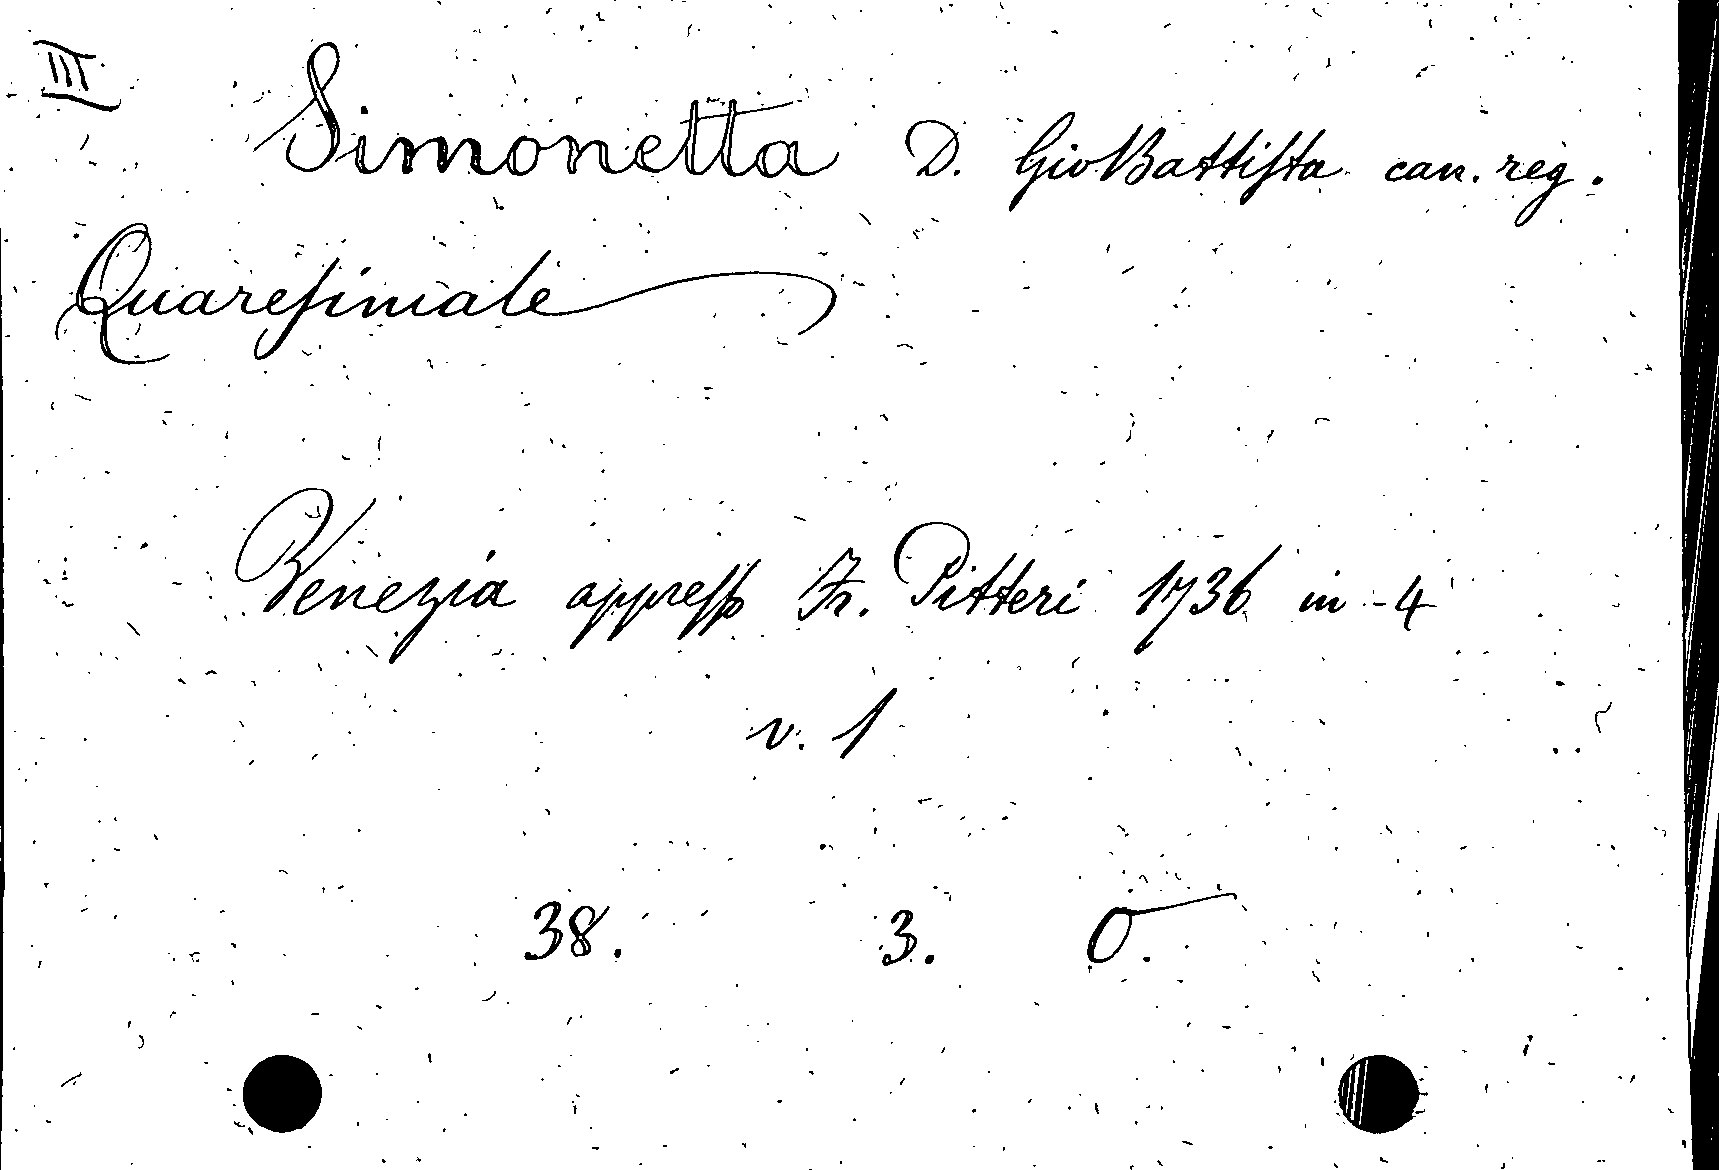 III
Simonetta D. GioBattiſta can. reg.
Quareſimale
Venezia appreſſo Fr. Pitteri 1736 in-4
v. 1
38. 3. O.